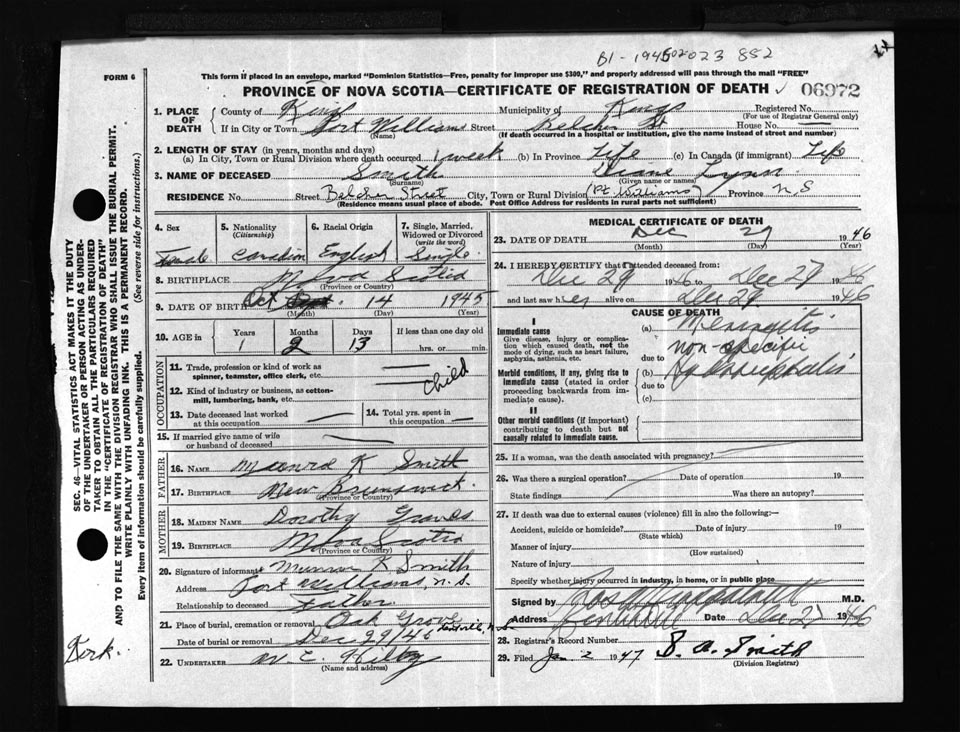 B1-1945 02023 882
FORM 6
This form if placed in an envelope, marked "Dominion Statistics—Free, penalty for improper use $300," and properly addressed will pass through the mail "FREE"
PROVINCE OF NOVA SCOTIA—CERTIFICATE OF REGISTRATION OF DEATH 06972
1. PLACE OF DEATH County of Kings Municipality of Kings Registered No. (For use of Registrar General only)
If in City or Town Port Williams (Name) Street Belcher St. House No.
(If death occurred in a hospital or institution, give the name instead of street and number)
2. LENGTH OF STAY (in years, months and days)
(a) In City, Town or Rural Division where death occurred 1 week (b) In Province Life (c) In Canada (if immigrant) Life
3. NAME OF DECEASED Smith (Surname) Diane Lynn (Given name or names)
RESIDENCE No. Street Belcher Street City, Town or Rural Division (Pt. Williams) Province N S
(Residence means usual place of abode. Post Office Address for residents in rural parts not sufficient)
4. Sex Female
5. Nationality (Citizenship) Canadian
6. Racial Origin English
7. Single, Married, Widowed or Divorced (write the word) Single
8. BIRTHPLACE Nova Scotia (Province or Country)
9. DATE OF BIRTH Oct 14 1945
(Month) (Day) (Year)
10. AGE in Years 1 Months 2 Days 13 If less than one day old hrs. or min.
OCCUPATION
11. Trade, profession or kind of work as spinner, teamster, office clerk, etc.
Child
12. Kind of industry or business, as cotton-mill, lumbering, bank, etc.
13. Date deceased last worked at this occupation
14. Total yrs. spent in this occupation
15. If married give name of wife or husband of deceased
FATHER
16. NAME Munro K Smith
17. BIRTHPLACE New Brunswick (Province or Country)
MOTHER
18. MAIDEN NAME Dorothy Graves
19. BIRTHPLACE Nova Scotia (Province or Country)
20. Signature of informant Munro K Smith
Address Port Williams, N.S.
Relationship to deceased Father
21. Place of burial, cremation or removal Oak Grove
Date of burial or removal Dec 29/46
22. UNDERTAKER (Name and address)
MEDICAL CERTIFICATE OF DEATH
23. DATE OF DEATH Dec 27 1946
(Month) (Day) (Year)
24. I HEREBY CERTIFY that I attended deceased from:
Dec 27 1946 to Dec 27 1946
and last saw her alive on Dec 27 1946
CAUSE OF DEATH
I
Immediate cause (a) Meningitis
Give disease, injury or complication which caused death, not the mode of dying, such as heart failure, asphyxia, asthenia, etc.
non-specific
due to
Morbid conditions, if any, giving rise to immediate cause (stated in order proceeding backwards from immediate cause).
(b) Hydrocephalis
due to
(c)
II
Other morbid conditions (if important) contributing to death but not causally related to immediate cause.
25. If a woman, was the death associated with pregnancy?
26. Was there a surgical operation? Date of operation 19
State findings Was there an autopsy?
27. If death was due to external causes (violence) fill in also the following:—
Accident, suicide or homicide? Date of injury 19
(State which)
Manner of injury
(How sustained)
Nature of injury
Specify whether injury occurred in industry, in home, or in public place
Signed by M.D.
Address Date Dec 27 1946
28. Registrar's Record Number
29. Filed Jan 2 1947 B. A. Smith
(Division Registrar)
SEC. 46—VITAL STATISTICS ACT MAKES IT THE DUTY
OF THE UNDERTAKER OR PERSON ACTING AS UNDERTAKER TO OBTAIN ALL THE PARTICULARS REQUIRED
IN THE "CERTIFICATE OF REGISTRATION OF DEATH"
AND TO FILE THE SAME WITH THE DIVISION REGISTRAR WHO SHALL ISSUE THE BURIAL PERMIT.
WRITE PLAINLY WITH UNFADING INK. THIS IS A PERMANENT RECORD.
Every item of information should be carefully supplied. (See reverse side for instructions.)